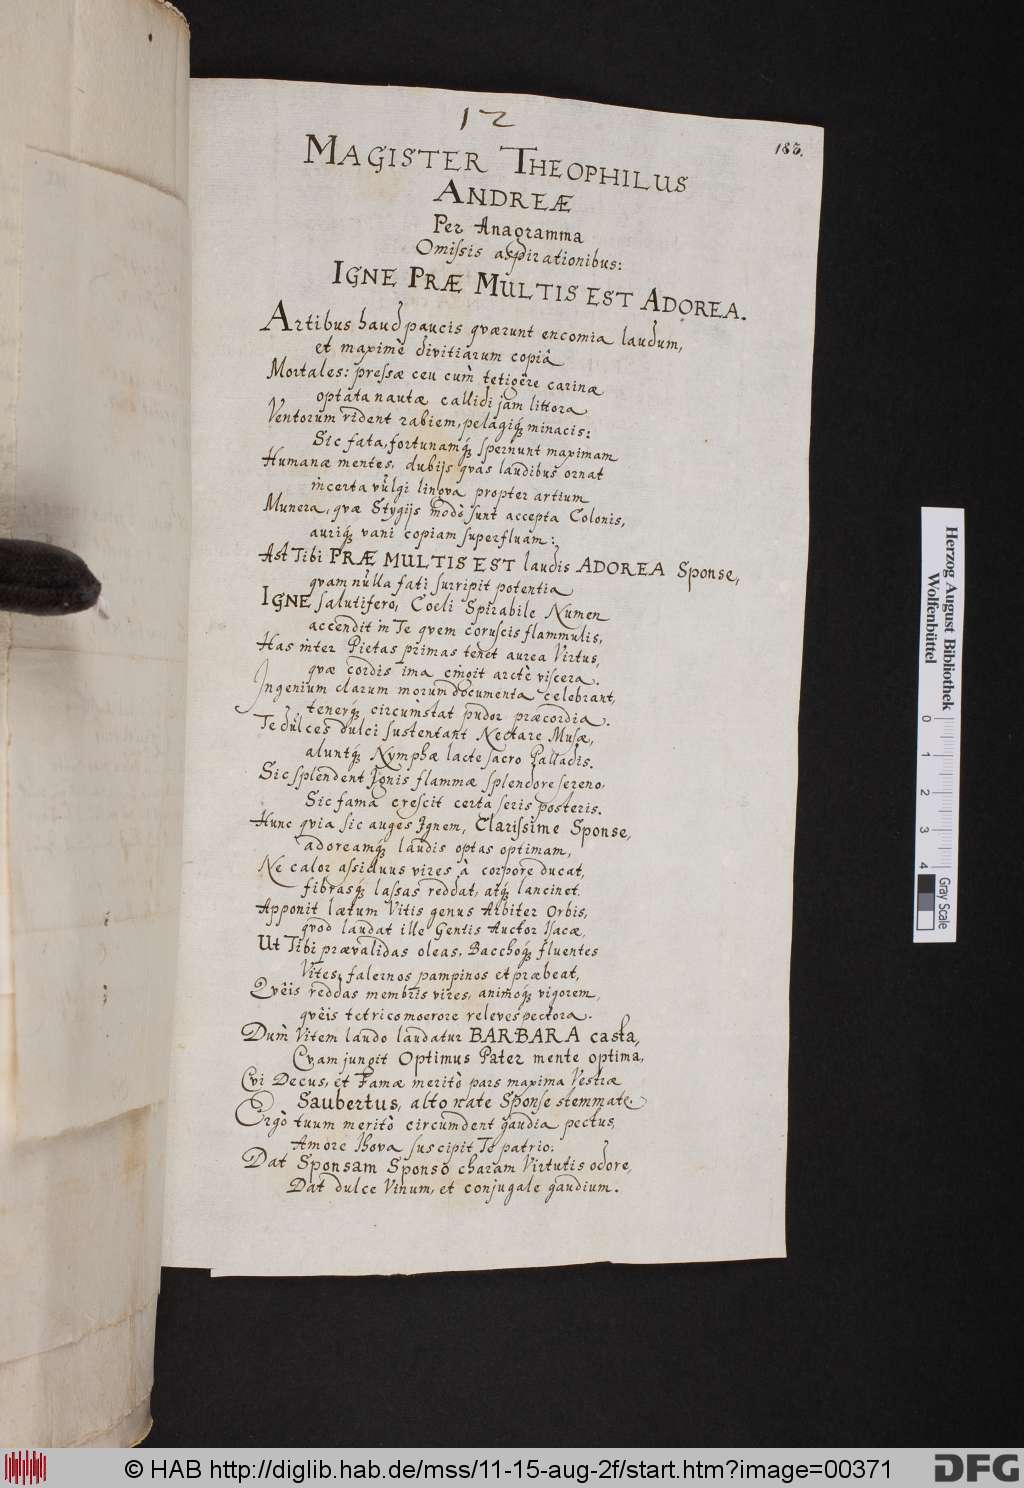 12
183.
MAGISTER THEOPHILUS
ANDREÆ
Per Anagramma
Omiſsis aspirationibus:
IGNE PRÆ MULTIS EST ADOREA.
Artibus haud paucis qværunt encomia laudum,
et maximè divitiarum copiâ
Mortales: preſsæ ceu cum̀ tetigêre carinæ
optata nautæ callidi jam littora
Ventorum rident rabiem, pelagiq́; minacis:
Sic fata, fortunamq́; spernunt maximam
Humanæ mentes, dubijs qvas laudibus ornat
incerta vulgi lingva propter artium
Munera, qvæ Stygijs modò ſunt accepta Colonis,
auriq́; vani copiam ſuperfluam:
Ast Tibi PRÆ MULTIS EST laudis ADOREA Sponse,
qvam nulla fati ſurripit potentia
IGNE ſalutifero, Coeli Spirabile Numen
accendit in Te qvem coruſcis flammulis,
Has inter Pietas primas tenet aurea Virtus,
qvæ cordis ima cingit arctè viſcera.
Ingenium clarum morum documenta celebrant,
tenerq́; circumstat pudor præcordia.
Te dulces dulci ſustentant Nectare Muſæ,
aluntq́; Nymphæ lacte sacro Palladis.
Sic splendent Ignis flammæ splendore ſereno,
Sic fama crescit certa ſeris posteris.
Hunc qvia ſic auges Ignem, Clariſsime Sponse,
adoreamq́; laudis optas optimam,
Ne calor aſsiduus vires à corpore ducat,
fibrasq́; laſsas reddat, atq́; lancinet.
Apponit lætum Vitis genus Arbiter Orbis,
qvod laudat ille Gentis Auctor Iſacæ,
Ut Tibi prævalidas oleas, Bacchoq́; fluentes
Vites, falernos pampinos et præbeat,
Qvêis reddas membris vires, animoq́; vigorem,
qvêis tetrico moerore releves pectora.
Dum̀ Vitem laudo laudatur BARBARA casta,
Cvam jungit Optimus Pater mente optima,
Cvi Decus, et Famæ meritò pars maxima Vestræ
Saubertus, alto nate Sponſe stemmate.
Ergò tuum meritò circumdent gaudia pectus,
Amore Ihova ſuscipit Te patrio:
Dat Sponsam Sponsô charam Virtutis odore,
Dat dulce Vinum, et conjugale gaudium.
Herzog August Bibliothek
Wolfenbüttel
0 1 2 3 4
Gray Scale
© HAB http://diglib.hab.de/mss/11-15-aug-2f/start.htm?image=00371
DFG